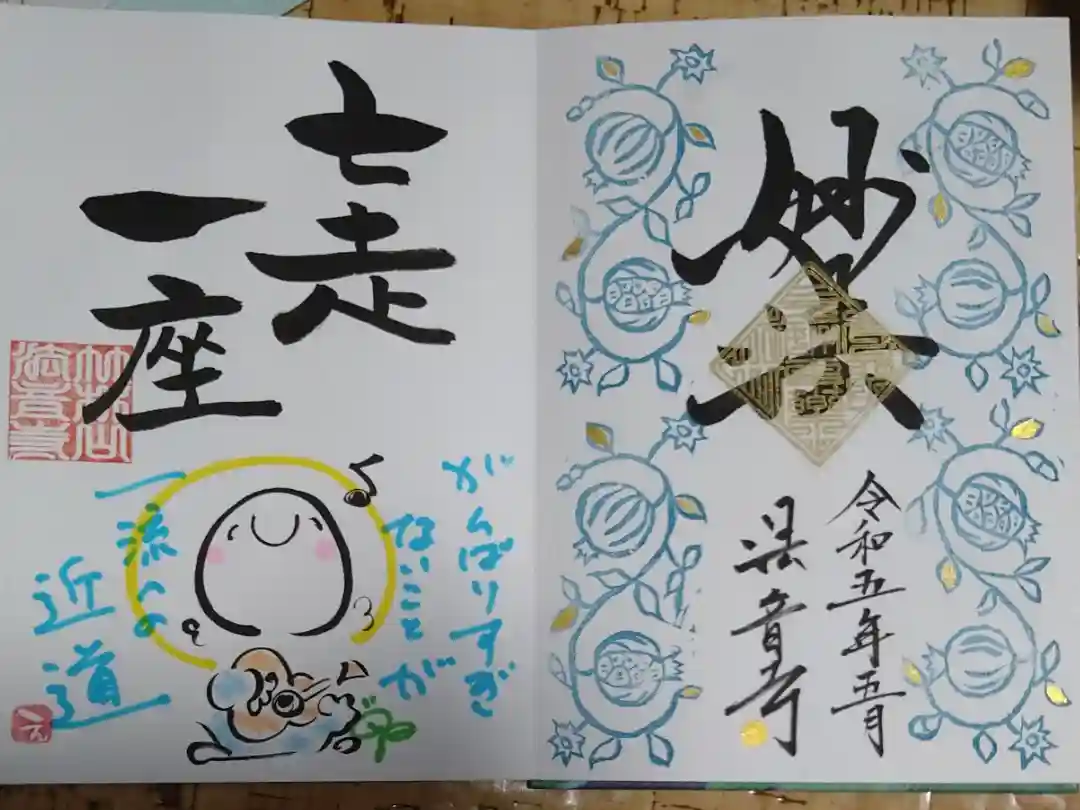 妙
令和五年五月
七走
一座
がんばりすぎ
ないことが
一流への
近道